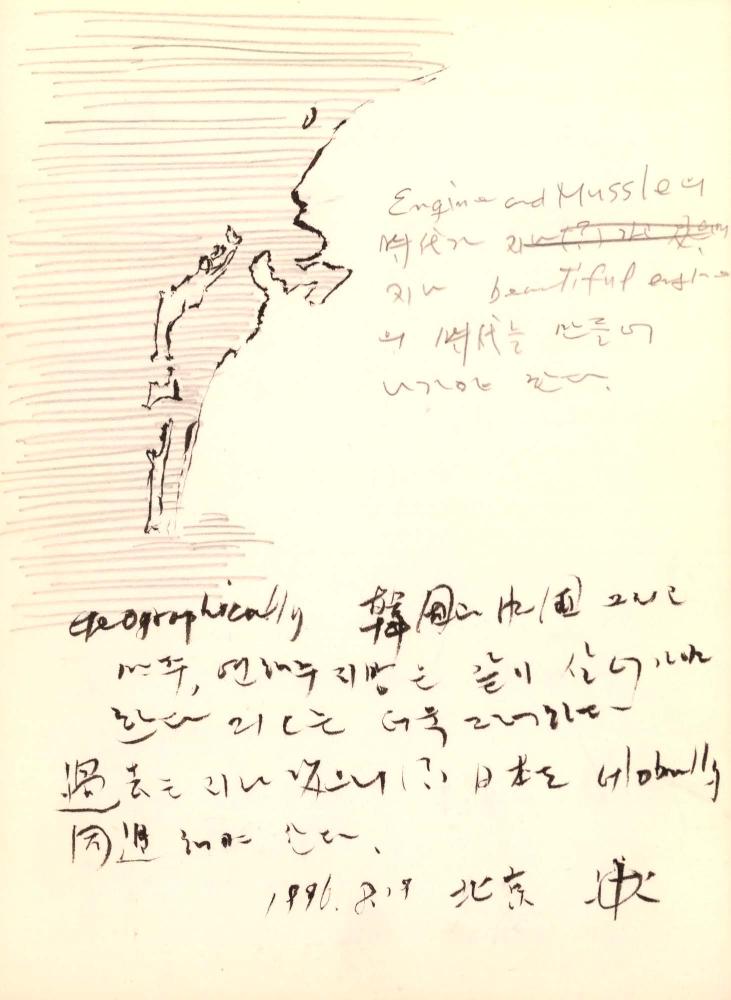 Engine and Mussle의
時代가 지나(?)가고
지나 beautiful engine
의 時代를 만들어
나가야 한다.
Geographically 韓国과 中国 그리고
만주, 연해주 지방은 같이 살어가야
한다 지금은 더욱 그러하다
過去는 지나갔으니 (?) 日本도 Globally
同過해야 한다.
1996. 8. 19 北京